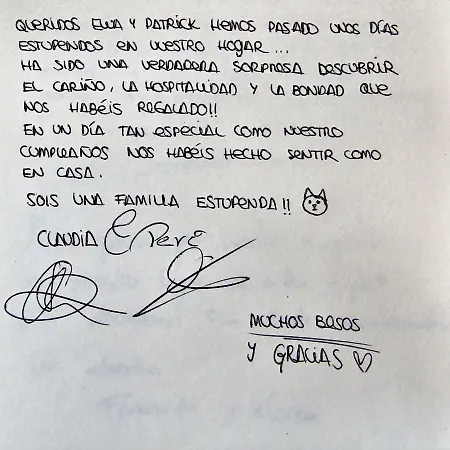 QUERIDOS EWA Y PATRICK HEMOS PASADO UNOS DÍAS
ESTUPENDOS EN VUESTRO HOGAR...
HA SIDO UNA VERDADERA SORPRESA DESCUBRIR
EL CARIÑO, LA HOSPITALIDAD Y LA BONDAD QUE
NOS HABÉIS REGALADO!!
EN UN DÍA TAN ESPECIAL COMO NUESTRO
CUMPLEAÑOS NOS HABÉIS HECHO SENTIR COMO
EN CASA.
SOIS UNA FAMILIA ESTUPENDA!!
CLAUDIA & PERE
MUCHOS BESOS
Y GRACIAS ♡